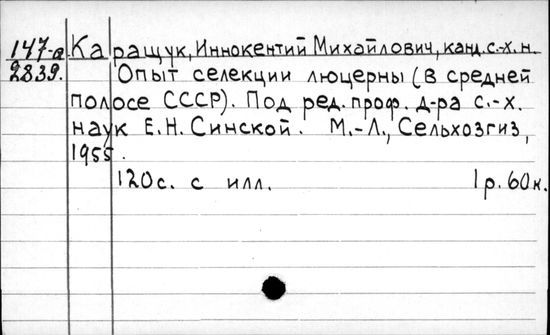 147-а Каращук, Иннокентий Михайлович, канд. с.-х. н.
2839. Опыт селекции люцерны (в средней
полосе СССР). Под ред. проф. д-ра с.-х.
наук Е.Н. Синской. М.-Л., Сельхозгиз,
1955.
120с. с илл. 1р. 60к.